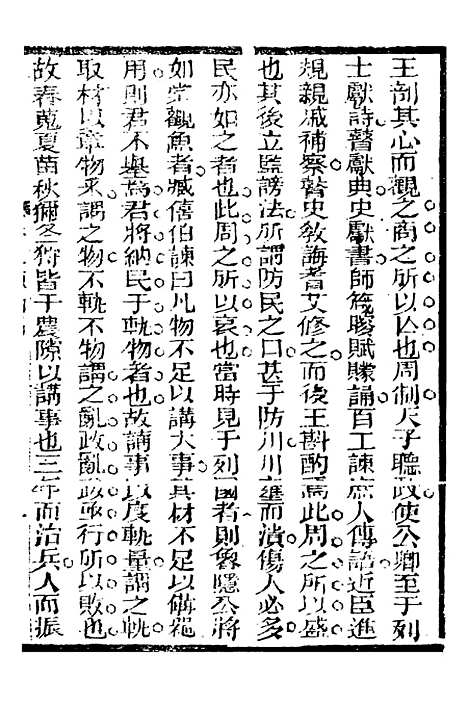 王剖其心而觀之商之所以亾也周制天子聽政使公卿至于列
士獻詩瞽獻典史獻書師箴瞍賦矇誦百工諫庶人傳語近臣進
規親戚補察瞽史敎誨耆艾修之而後王斟酌焉此周之所以盛
也其後立監謗法所謂防民之口甚于防川川壅而潰傷人必多
民亦如之者也此周之所以衰也當時見于列國者則魯隱公將
如棠觀魚者臧僖伯諫曰凡物不足以講大事其材不足以備器
用則君不舉焉君將納民于軌物者也故講事以度軌量謂之軌
取材以章物采謂之物不軌不物謂之亂政亂政亟行所以敗也
故春蒐夏苗秋獮冬狩皆于農隙以講事也三年而治兵人而振